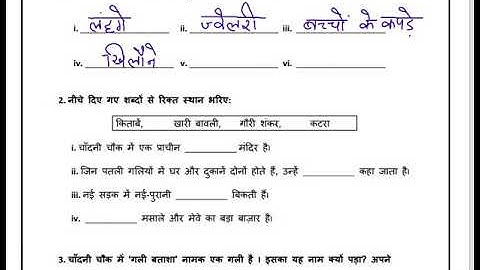 i. लंहगे ii. ज्वेलरी iii. बच्चों के कपड़े
iv. खिलौने v. ____________ vi. ____________
2. नीचे दिए गए शब्दों से रिक्त स्थान भरिए:
किताबें, खारी बावली, गौरी शंकर, कटरा
i. चाँदनी चौक में एक प्राचीन __________ मंदिर है।
ii. जिन पतली गलियों में घर और दुकानें दोनों होते हैं, उन्हें __________ कहा जाता है।
iii. नई सड़क में नई-पुरानी __________ बिकती हैं।
iv. __________ मसाले और मेवे का बड़ा बाज़ार है।
3. चाँदनी चौक में 'गली बताशा' नामक एक गली है । इसका यह नाम क्यों पड़ा? अपने